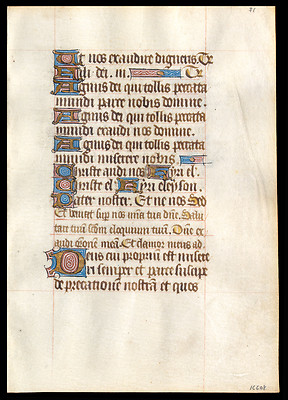 Ut nos exaudire digneris. Te
Fili dei. iii. Te
Agnus dei qui tollis peccata
mundi parce nobis domine.
Agnus dei qui tollis peccata
mundi exaudi nos domine.
Agnus dei qui tollis peccata
mundi miserere nobis.
Christe audi nos Kyri el.
Christe el. Kyri eleyson.
Pater noster. Et ne nos Sed
Et veniat sup nos mia tua dne. Salu
tare tuum scdm eloquium tuum. Dne ex
audi oronem meam. Et clamor meus ad.
Deus cui proprium est misere
ri semper et parce suscipe
deprecatione nostram et quos